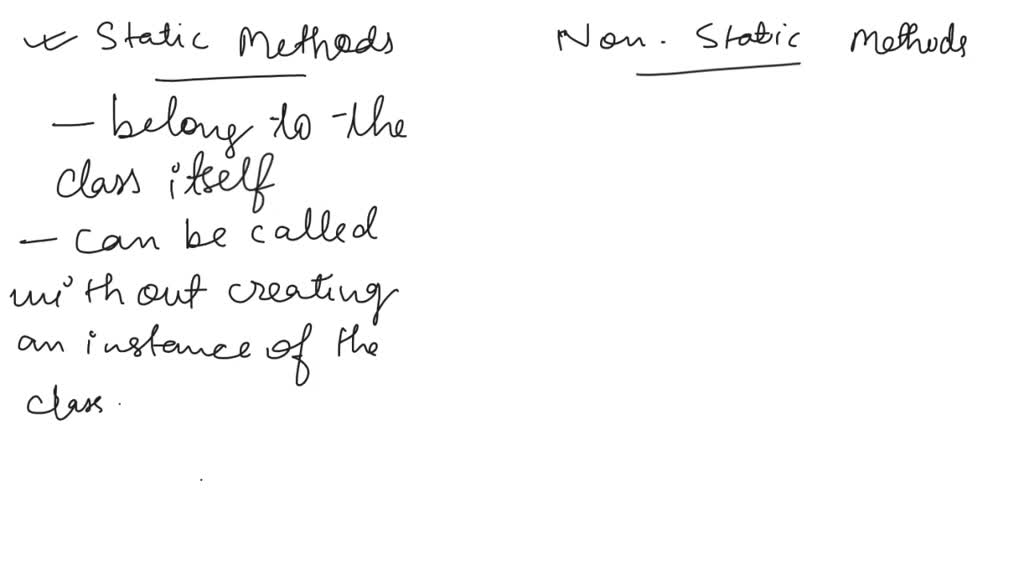 Static Methods
- belong to the
class itself
- can be called
without creating
an instance of the
class.
Non. Static Methods